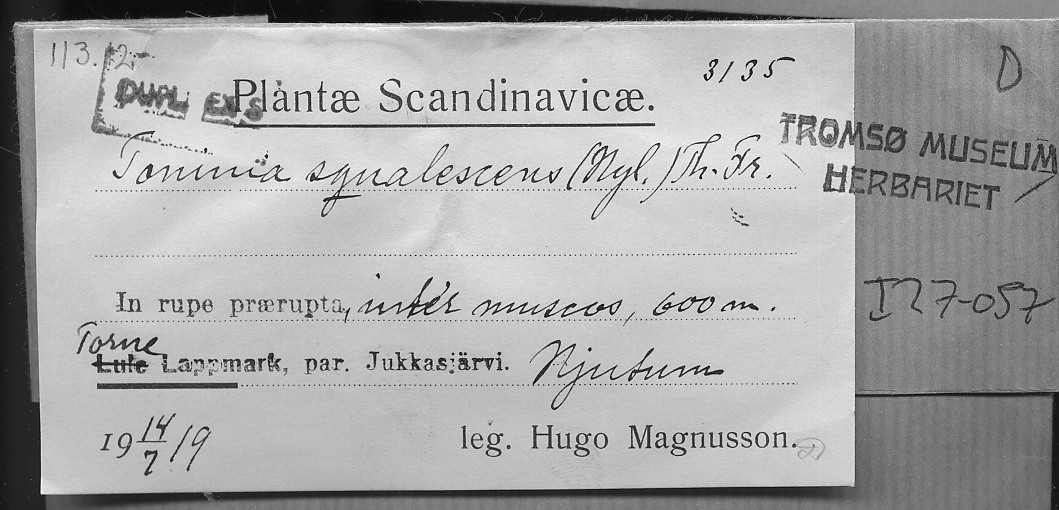 113.12
3135
D
DUPL EX S
Plantæ Scandinavicæ.
Toninia squalescens (Nyl.) Th. Fr.
TROMSØ MUSEUM
HERBARIET
In rupe prærupta, inter muscos, 600 m.
I27-057
Torne
Lule Lappmark, par. Jukkasjärvi. Njutum
19 14/7 19
leg. Hugo Magnusson.